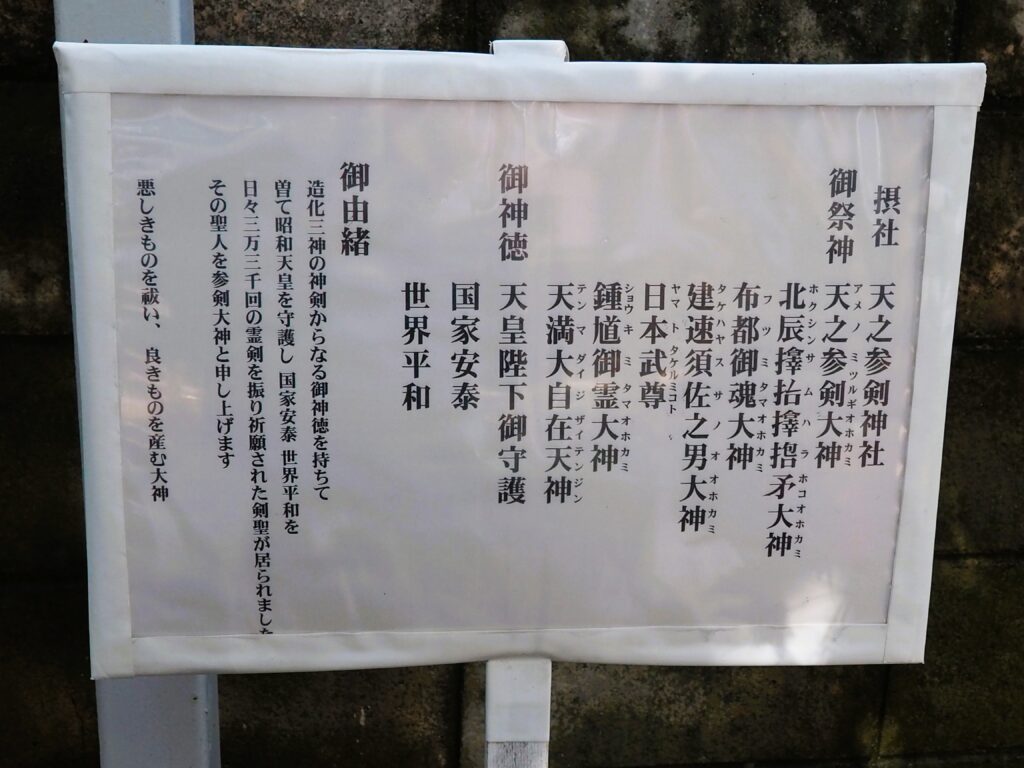 摂社
天之参剣神社
御祭神
天之参剣大神
アメノミツルギオホカミ
北辰撑抬撑㨋矛大神
ホクシンサムハラホコオホカミ
布都御魂大神
フツミタマオホカミ
建速須佐之男大神
タケハヤスサノオオホカミ
日本武尊
ヤマトタケルミコト
鍾馗御霊大神
ショウキミタマオホカミ
天満大自在天神
テンマダイジザイテンジン
御神徳
天皇陛下御守護
国家安泰
世界平和
御由緒
造化三神の神剣からなる御神徳を持ちて
曽て昭和天皇を守護し 国家安泰 世界平和を
日々三万三千回の霊剣を振り祈願された剣聖が居られました
その聖人を参剣大神と申し上げます
悪しきものを祓い、良きものを産む大神